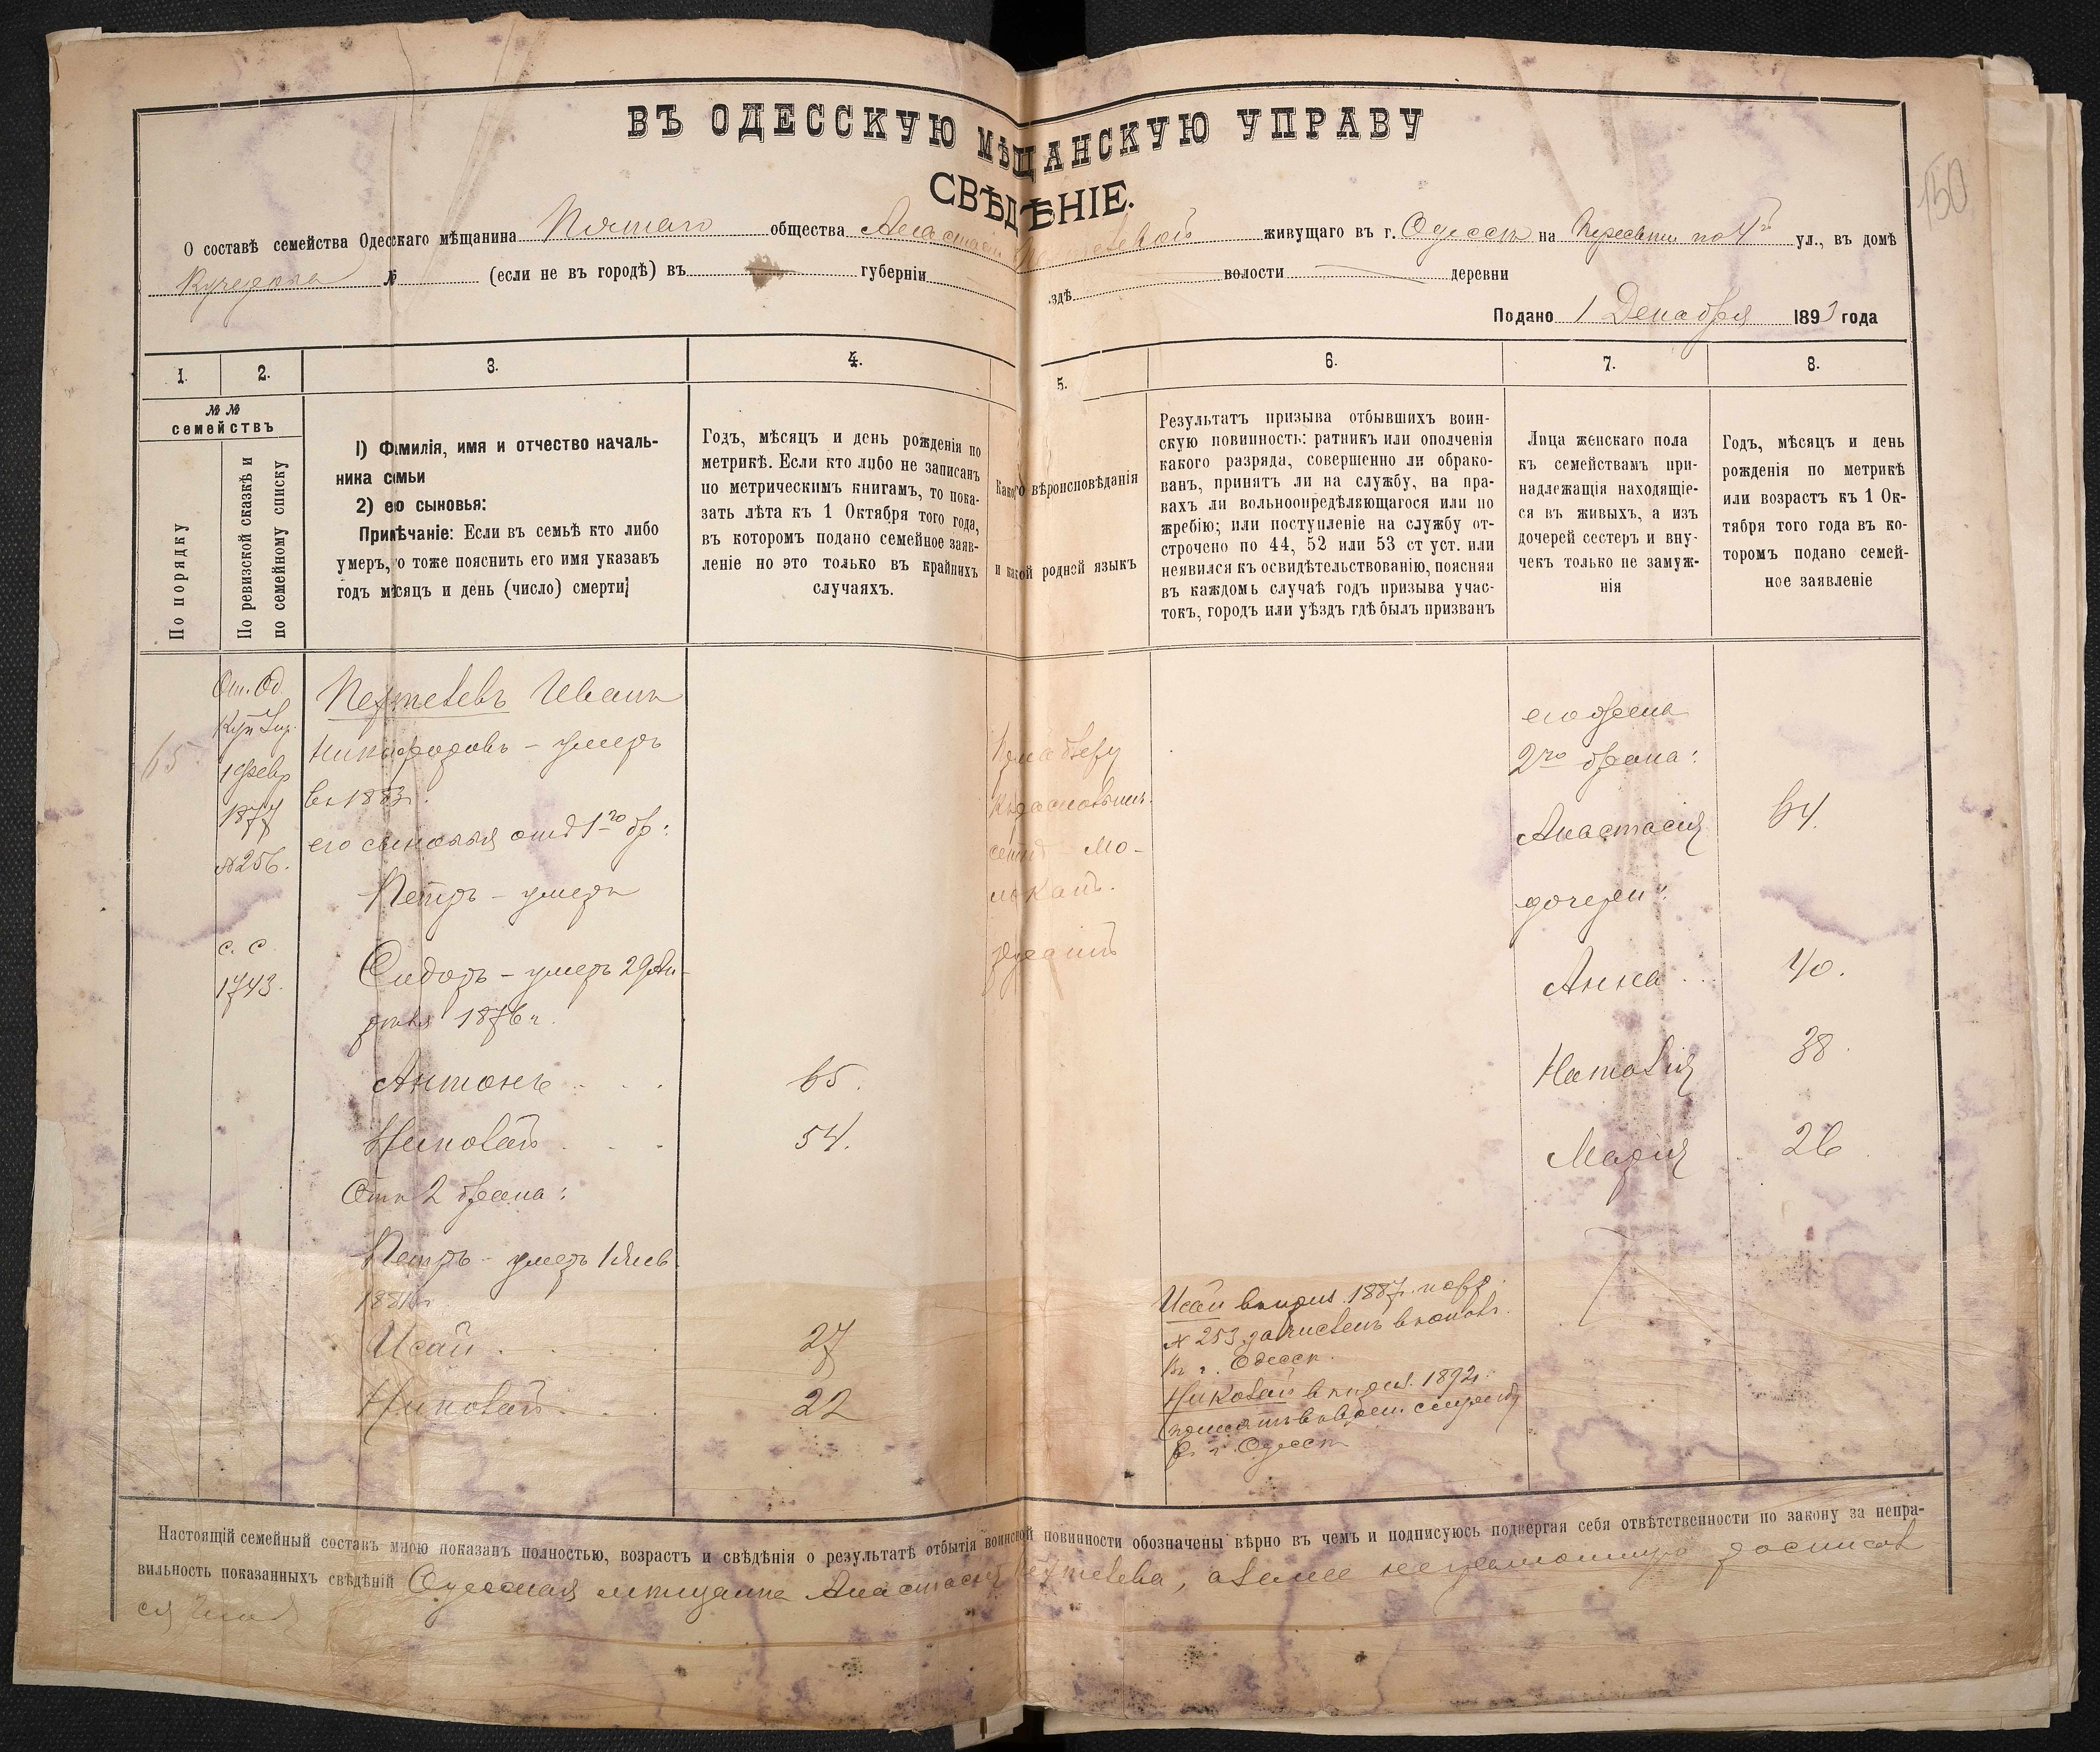 150
ВЪ ОДЕССКУЮ МѢЩАНСКУЮ УПРАВУ
СВѢДѢНІЕ.
О составѣ семейства Одесскаго мѣщанина Пятаго общества Анастасіи живущаго въ г. Одессѣ на Пересыпи по 4й ул., въ домѣ
№ (если не въ городѣ) въ губерніи здѣ волости деревни
Подано 1 Декабря 1893 года
1.
2.
3.
4.
5.
6.
7.
8.
№№
семействъ
По порядку
По ревизской сказкѣ и
по семейному списку
1) Фамилія, имя и отчество началь-
ника семьи
2) его сыновья:
Примѣчаніе: Если въ семьѣ кто либо
умеръ, то тоже пояснить его имя указавъ
годъ мѣсяцъ и день (число) смерти;
Годъ, мѣсяцъ и день рожденія по
метрикѣ. Если кто либо не записанъ
по метрическимъ книгамъ, то пока-
зать лѣта къ 1 Октября того года,
въ которомъ подано семейное заяв-
леніе но это только въ крайнихъ
случаяхъ.
Какого вѣроисповѣданія
и какой родной языкъ
Результатъ призыва отбывшихъ воин-
скую повинность: ратникъ или ополченія
какого разряда, совершенно ли обрако-
ванъ, принятъ ли на службу, на пра-
вахъ ли вольноопредѣляющагося или по
жребію; или поступленіе на службу от-
строчено по 44, 52 или 53 ст уст. или
неявился къ освидѣтельствованію, поясняя
въ каждомъ случаѣ годъ призыва учас-
токъ, городъ или уѣздъ гдѣ былъ призванъ
Лица женскаго пола
къ семействамъ при-
надлежащія находящіе-
ся въ живыхъ, а изъ
дочерей сестеръ и вну-
чекъ только не замуж-
нія
Годъ, мѣсяцъ и день
рожденія по метрикѣ
или возрастъ къ 1 Ок-
тября того года въ ко-
торомъ подано семей-
ное заявленіе
65
От. Од.
1 февр
1877
№ 256.
с. с.
1743.
Иванъ
Никифоровъ - умеръ
въ 1883г.
его сыновья отъ 1го бр:
Петръ - умеръ
Сидоръ - умеръ 29 Ап-
рѣля 1876 г.
Антонъ 65.
Николай 54.
Отъ 2 брака:
Петръ - умеръ 1
Исай 27
Николай 22
секты Мо-
локанъ.
русскій
Исай въ приз. 1887г. по
№ 253 зачисленъ в
Въ г. Одессѣ.
Николай в призыв. 1892г.
в г. Одессѣ
2го брака:
Анастасія 64.
дочери:
Анна 40.
Наталія 38.
Марія 26
Настоящій семейный составъ мною показанъ полностью, возрастъ и свѣдѣнія о результатѣ отбытія воинской повинности обозначены вѣрно въ чемъ и подписуюсь подвергая себя отвѣтственности по закону за непра-
вильность показанныхъ свѣдѣній Одесская мѣщанка Анастасія а вмѣсто неграмотной росписал
ся